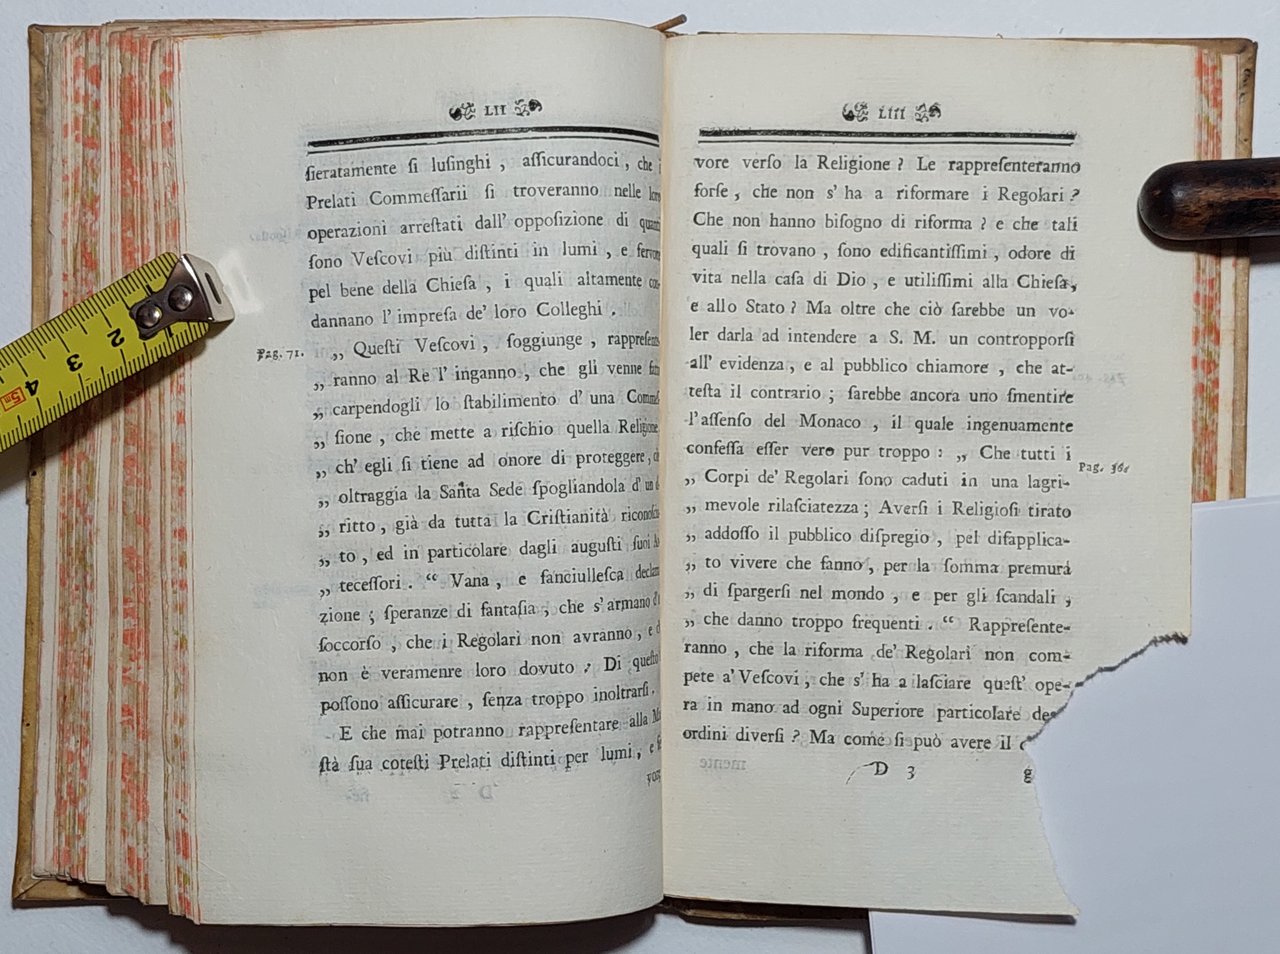 LII
ſieratamente ſi luſinghi , aſſicurandoci , che i
Prelati Commeſſarii ſi troveranno nelle loro
operazioni arreſtati dall' oppoſizione di quanti
ſono Veſcovi più diſtinti in lumi , e fervore
pel bene della Chieſa , i quali altamente con-
dannano l' impreſa de' loro Colleghi .
Pag. 71.
„ Queſti Veſcovi , foggiunge , rappreſente-
„ ranno al Re l' inganno , che gli venne fatto
„ carpendogli lo ſtabilimento d' una Commeſ-
„ ſione , che mette a riſchio quella Religione
„ ch' egli ſi tiene ad onore di proteggere ,
„ oltraggia la Santa Sede ſpogliandola d' un
„ ritto , già da tutta la Criſtianità
„ to , ed in particolare dagli auguſti ſuoi
„ teceſſori . “ Vana , e fanciulleſca
zione ; ſperanze di fantaſia , che s' armano
ſoccorſo , che i Regolari non avranno , e
non è veramenre loro dovuto . Di queſto
poſſono aſſicurare , ſenza troppo inoltrarſi .
E che mai potranno rappreſentare alla
ſtà ſua coteſti Prelati diſtinti per lumi , e
LIII
vore verſo la Religione ? Le rappreſenteranno
forſe , che non s' ha a riformare i Regolari ?
Che non hanno biſogno di riforma ? e che tali
quali ſi trovano , ſono edificantiſſimi , odore di
vita nella caſa di Dio , e utiliſſimi alla Chieſa,
e allo Stato ? Ma oltre che ciò ſarebbe un vo-
ler darla ad intendere a S. M. un contropporſi
all' evidenza , e al pubblico chiamore , che at-
teſta il contrario ; ſarebbe ancora uno ſmentire
l' aſſenſo del Monaco , il quale ingenuamente
confeſſa eſſer vero pur troppo : „ Che tutti i
Pag.
„ Corpi de' Regolari ſono caduti in una lagri-
„ mevole rilaſciatezza ; Averſi i Religioſi tirato
„ addoſſo il pubblico diſpregio , pel difapplica-
„ to vivere che fanno , per la ſomma premura
„ di ſpargerſi nel mondo , e per gli ſcandali ,
„ che danno troppo frequenti . “ Rappreſente-
ranno , che la riforma de' Regolari non com-
pete a' Veſcovi , che s' ha a laſciare queſt' ope-
ra in mano ad ogni Superiore particolare
ordini diverſi ? Ma come ſi può avere il
D 3